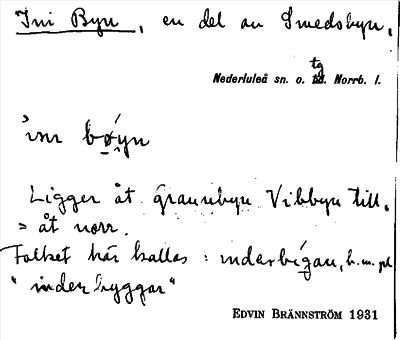 Ini Byn, en del av Smedsbyn,
Nederluleå sn. o. tg. Norrb. l.
ìnı bøyn
Ligger åt grannebyn Vibbyn till,
> åt norr.
Folket här kallas: inderbigau, b.m. pl
"inderbyggar"
EDVIN BRÄNNSTRÖM 1931